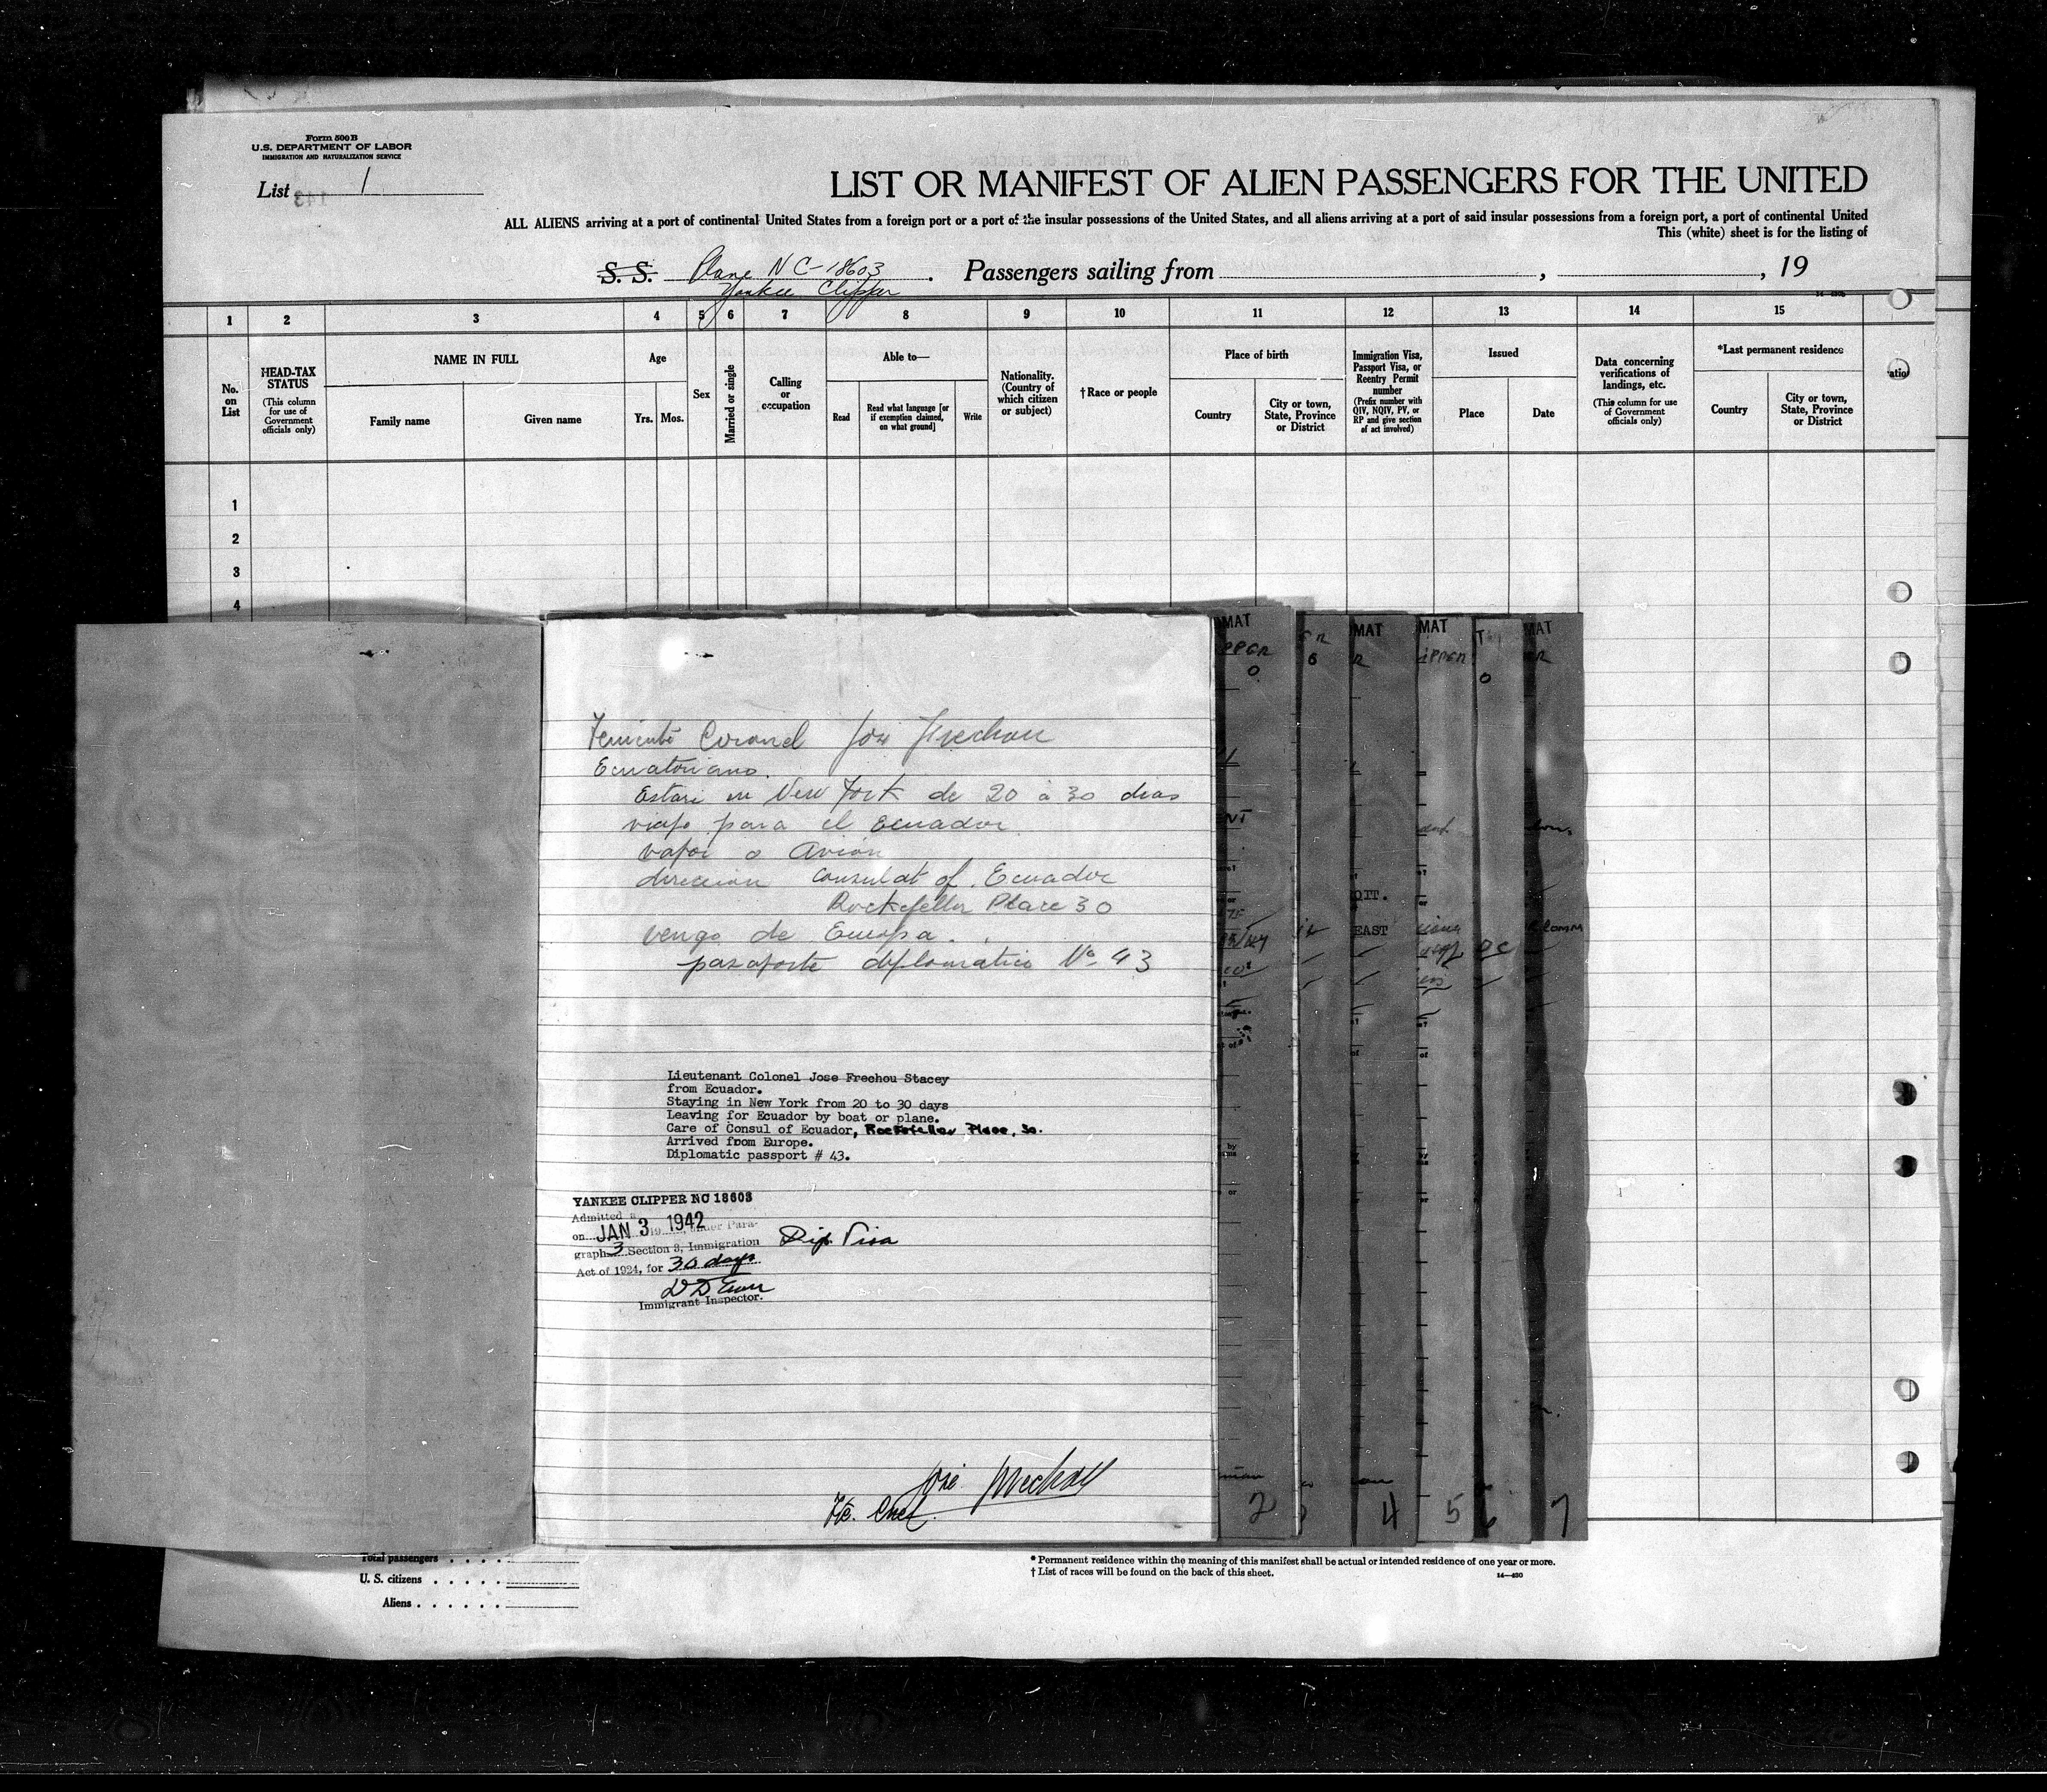 Form 500 B
U.S. DEPARTMENT OF LABOR
IMMIGRATION AND NATURALIZATION SERVICE
List 1
143
LIST OR MANIFEST OF ALIEN PASSENGERS FOR THE UNITED
ALL ALIENS arriving at a port of continental United States from a foreign port or a port of the insular possessions of the United States, and all aliens arriving at a port of said insular possessions from a foreign port, a port of continental United
This (white) sheet is for the listing of
S. S. Plane NC-18603 . Passengers sailing from , , 19
Yankee Clipper
1 2 3 4 5 6 7 8 9 10 11 12 13 14 15
No. on List
HEAD-TAX STATUS
(This column for use of Government officials only)
NAME IN FULL
Family name
Given name
Age
Yrs. Mos.
Sex
Married or single
Calling or occupation
Able to—
Read
Read what language [or if exemption claimed, on what ground]
Write
Nationality. (Country of which citizen or subject)
†Race or people
Place of birth
Country
City or town, State, Province or District
Immigration Visa, Passport Visa, or Reentry Permit number
(Prefix number with QIV, NQIV, PV, or RP and give section of act involved)
Issued
Place
Date
Data concerning verifications of landings, etc.
(This column for use of Government officials only)
*Last permanent residence
Country
City or town, State, Province or District
1
2
3
4
Teniente Coronel José Frechou
Ecuatoriano.
Estare en New York de 20 a 30 dias
viajo para el Ecuador
vapor o Avion
direccion Consulat of Ecuador
Rockefeller Place 30
vengo de Europa.
pasaporte diplomatico No 43
Lieutenant Colonel Jose Frechou Stacey
from Ecuador.
Staying in New York from 20 to 30 days
Leaving for Ecuador by boat or plane.
Care of Consul of Ecuador, Rockefeller Place, 30.
Arrived from Europe.
Diplomatic passport # 43.
YANKEE CLIPPER NC 18603
Admitted
on JAN 3 1942, under Para-
graph 3 Section 3, Immigration
Act of 1924, for 30 days
Dip. Visa
Immigrant Inspector.
José Frechou
2 4 5 6 7
Total passengers . . . .
U. S. citizens . . . . .
Aliens . . . . . .
* Permanent residence within the meaning of this manifest shall be actual or intended residence of one year or more.
† List of races will be found on the back of this sheet.
14—430